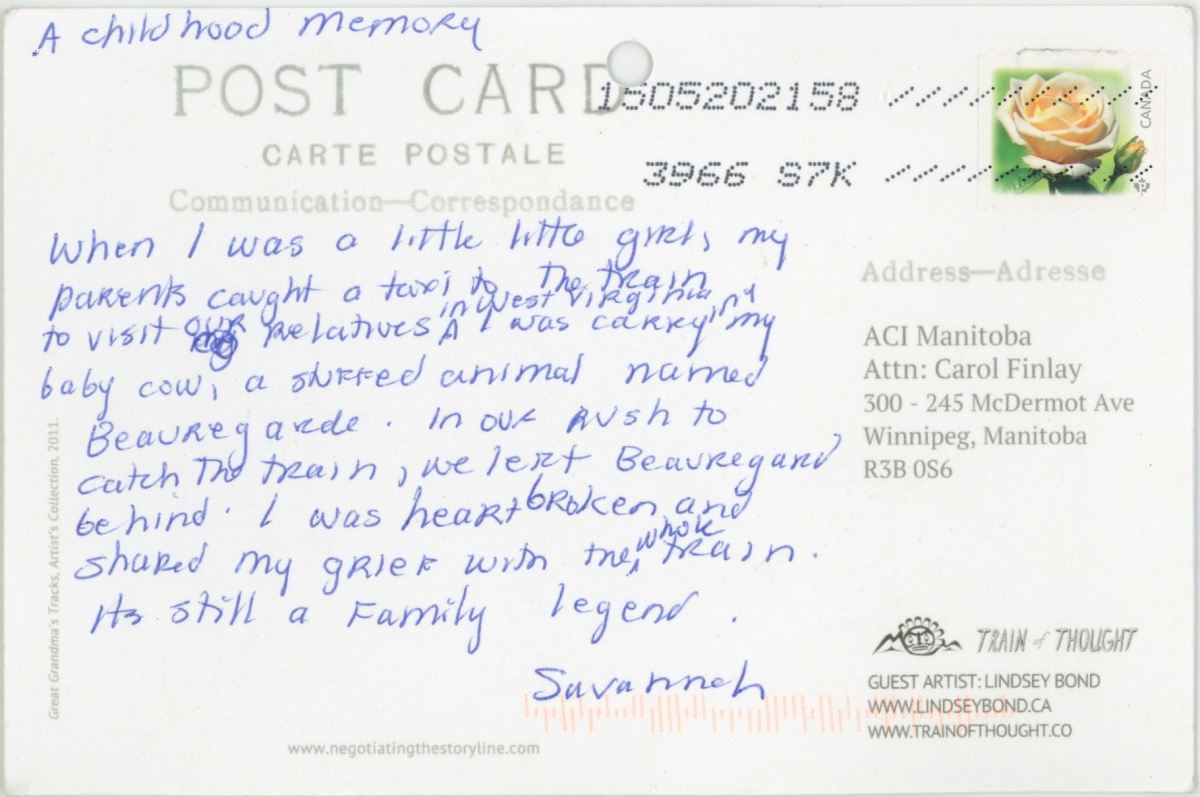 A childhood memory
POST CARD
1505202158
CARTE POSTALE
3966 S7K
CANADA
Communication—Correspondance
When I was a little little girl, my
parents caught a taxi to the train
in West Virginia
to visit our relatives ^ I was carrying my
baby cow, a stuffed animal named
Beauregarde. In our rush to
catch the train, we left Beauregard
behind. I was heartbroken and
whole
shared my grief with the ^ train.
Its still a family legend.
Savannah
Address—Adresse
ACI Manitoba
Attn: Carol Finlay
300 - 245 McDermot Ave
Winnipeg, Manitoba
R3B 0S6
TRAIN of THOUGHT
GUEST ARTIST: LINDSEY BOND
WWW.LINDSEYBOND.CA
WWW.TRAINOFTHOUGHT.CO
www.negotiatingthestoryline.com
Great Grandma's Tracks, Artist's Collection, 2011.